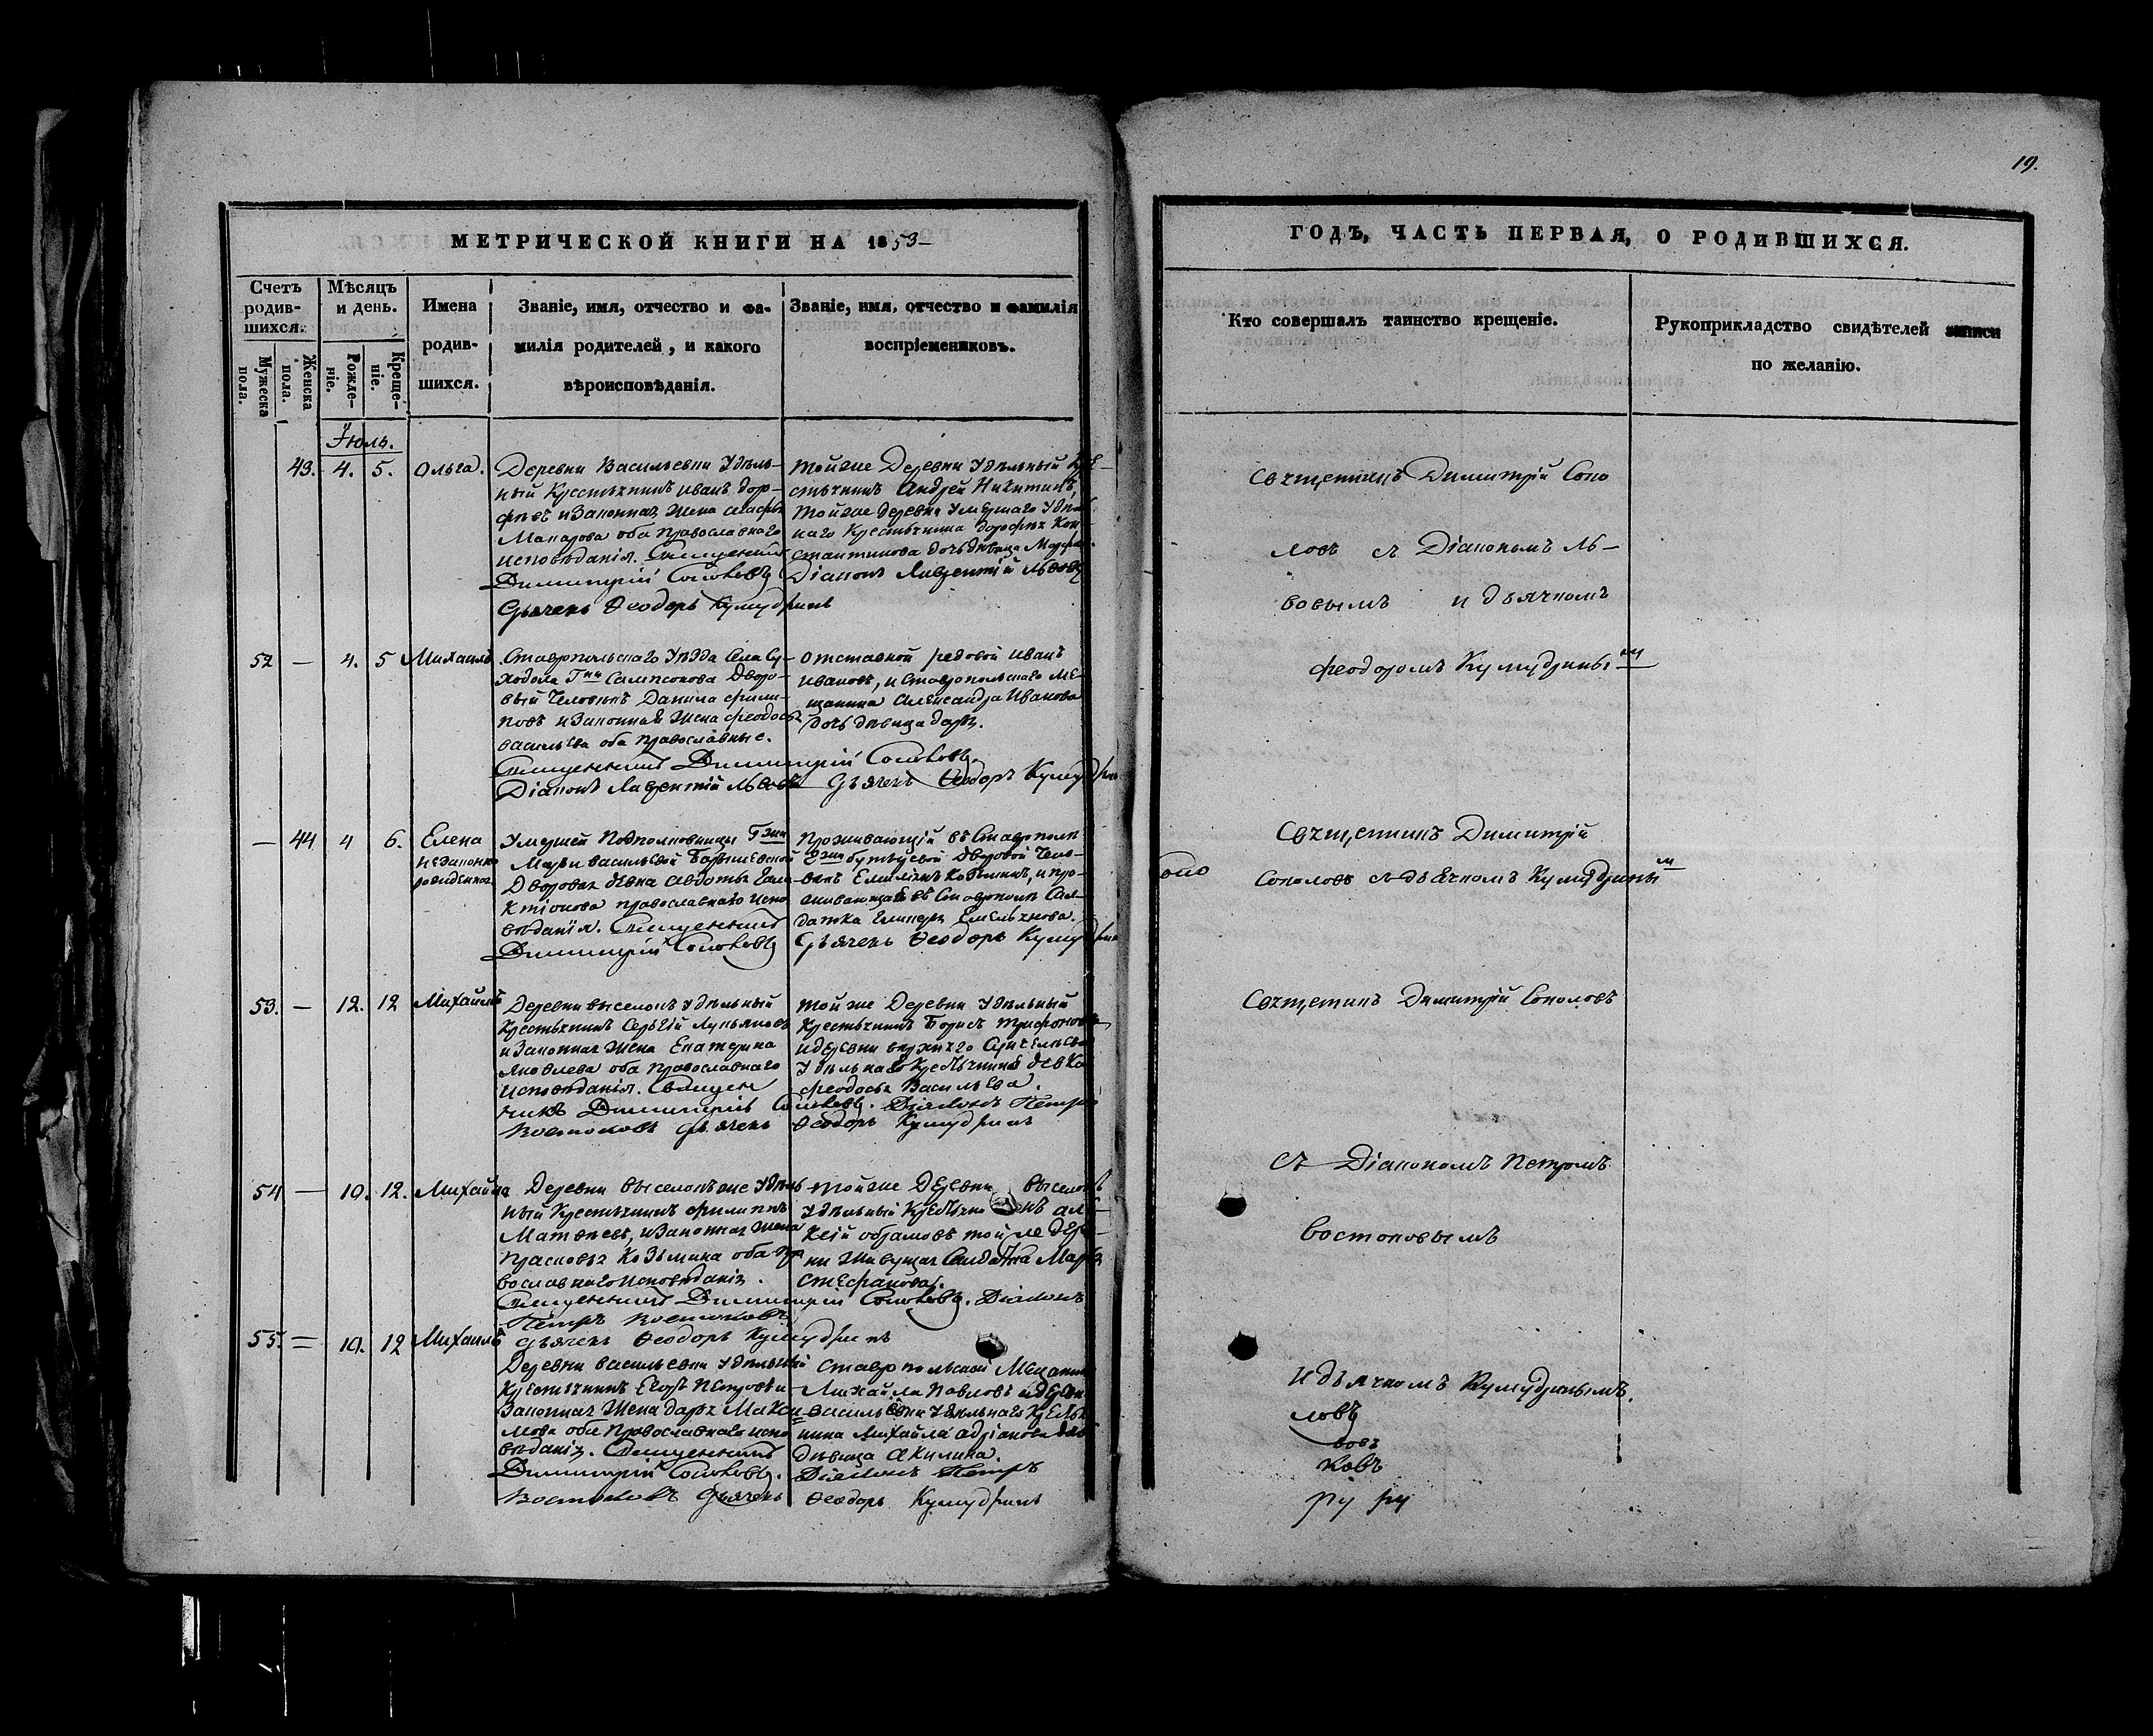 19.
МЕТРИЧЕСКОЙ КНИГИ НА 1853
Счетъ родив-шихся.
Мужеска пола.
Женска пола.
Мѣсяцъ и день.
Рожде-ніе.
Креще-ніе.
Имена родив-шихся.
Званіе, имя, отчество и фа-
милія родителей, и какого
вѣроисповѣданія.
Званіе, имя, отчество и фамилія
воспріемниковъ.
Іюль.
43. 4. 5. Ольга.
Деревни Васильевки Удѣль-
ный Крестьянинъ Иванъ Доро-
фѣевъ и Законная Жена
Макарова оба Православнаго
исповѣданія. Священникъ
Димитрій Соколовъ
Дьячекъ Ѳеодоръ Кумудринъ
тойже Деревни Удѣльный Кре-
стьянинъ Андрей Никитинъ,
тойже деревни Умершаго Удѣль
наго Крестьянина Дорофея Кон-
стантинова дочь дѣвица
Діаконъ Лаврентій Львовъ
52 — 4. 5 Михаилъ
Ставропольскаго Уѣзда Села Су-
ходола Г Сампсонова Дворо-
вый Человѣкъ Данила Фили-
повъ и Законная Жена Феодосья
Васильева оба православные.
Священникъ Димитрій Соколовъ.
Діаконъ Лаврентій Львовъ Дьячекъ Ѳеодоръ Кумудринъ
Отставной редовой Иванъ
Ивановъ, и Ставропольскаго Ме-
щанина Александра Иванова
дочь дѣвица Дарья.
— 44 4 6. Елена
незаконно
рожденная
Умершей Подполковницы Г
Марьи Васильевой Барышевской
Дворовая девка Авдотья Гала-
ктіонова православнаго испо
вѣданія. Священникъ
Димитрій Соколовъ
Проживающій въ Ставрополѣ
Дворовой Чело-
вѣкъ Емельянъ Козминъ, и про-
живающая въ Ставрополѣ Сол-
датка Емельянова.
Дьячекъ Ѳеодоръ Кумудринъ
53. — 12. 12 Михаилъ
Деревни Выселокъ Удѣльный
Крестьянинъ Сергѣй Лукьяновъ
и Законная Жена Екатерина
Яковлева оба Православнаго
исповѣданія. Священ
никъ Димитрій Соколовъ. Діаконъ Петръ
Востоковъ Дьячекъ Ѳеодоръ Кумудринъ
той же Деревни Удѣльный
Крестьянинъ Борисъ Трифоновъ
и деревни
Удѣльнаго Крестьянина девка
Феодосья Васильева.
54 — 10. 12. Михаилъ
Деревни Выселокъ же Удѣль
ный Крестьянинъ Филиппъ
Матвѣевъ, и Законная Жена
Прасковья Козьмина оба пра
вославнаго исповѣданія.
Священникъ Димитрій Соколовъ. Діаконъ
Петръ Востоковъ
Дьячекъ Ѳеодоръ Кумудринъ
тойже Деревни Выселокъ
Удѣльный Крестьянинъ Але-
ксѣй тойже дере-
ни Живущая Солдатка Марья
Стефанова.
55. = 10. 12 Михаилъ
Деревни Васильевки Удѣльный
Крестьянинъ Егоръ Петровъ и
Законная Жена Дарья Макси-
мова оба Православнаго испо
вѣданія. Священникъ
Димитрій Соколовъ.
Востоковъ Дьячекъ
Ставропольской Мещанинъ
Михайла Павловъ и деревни
Васильевки Удѣльнаго Крестья
нина Михайла Адріанова
дѣвица Акилина.
Діаконъ Петръ
Ѳеодоръ Кумудринъ
ГОДЪ, ЧАСТЬ ПЕРВАЯ, О РОДИВШИХСЯ.
Кто совершалъ таинство крещеніе.
Рукоприкладство свидѣтелей записи
по желанію.
Священникъ Димитрій Соко
ловъ съ Діакономъ Ль-
вовымъ и дьячкомъ
Феодоромъ Кумудринымъ
Священникъ Димитрій
Соколовъ съ дьячкомъ Кумудринымъ
Священникъ Димитрій Соколовъ
съ Діакономъ Петромъ
Востоковымъ
и дьячкомъ Кумудринымъ.
ловъ
вовъ
ковъ
ру ру